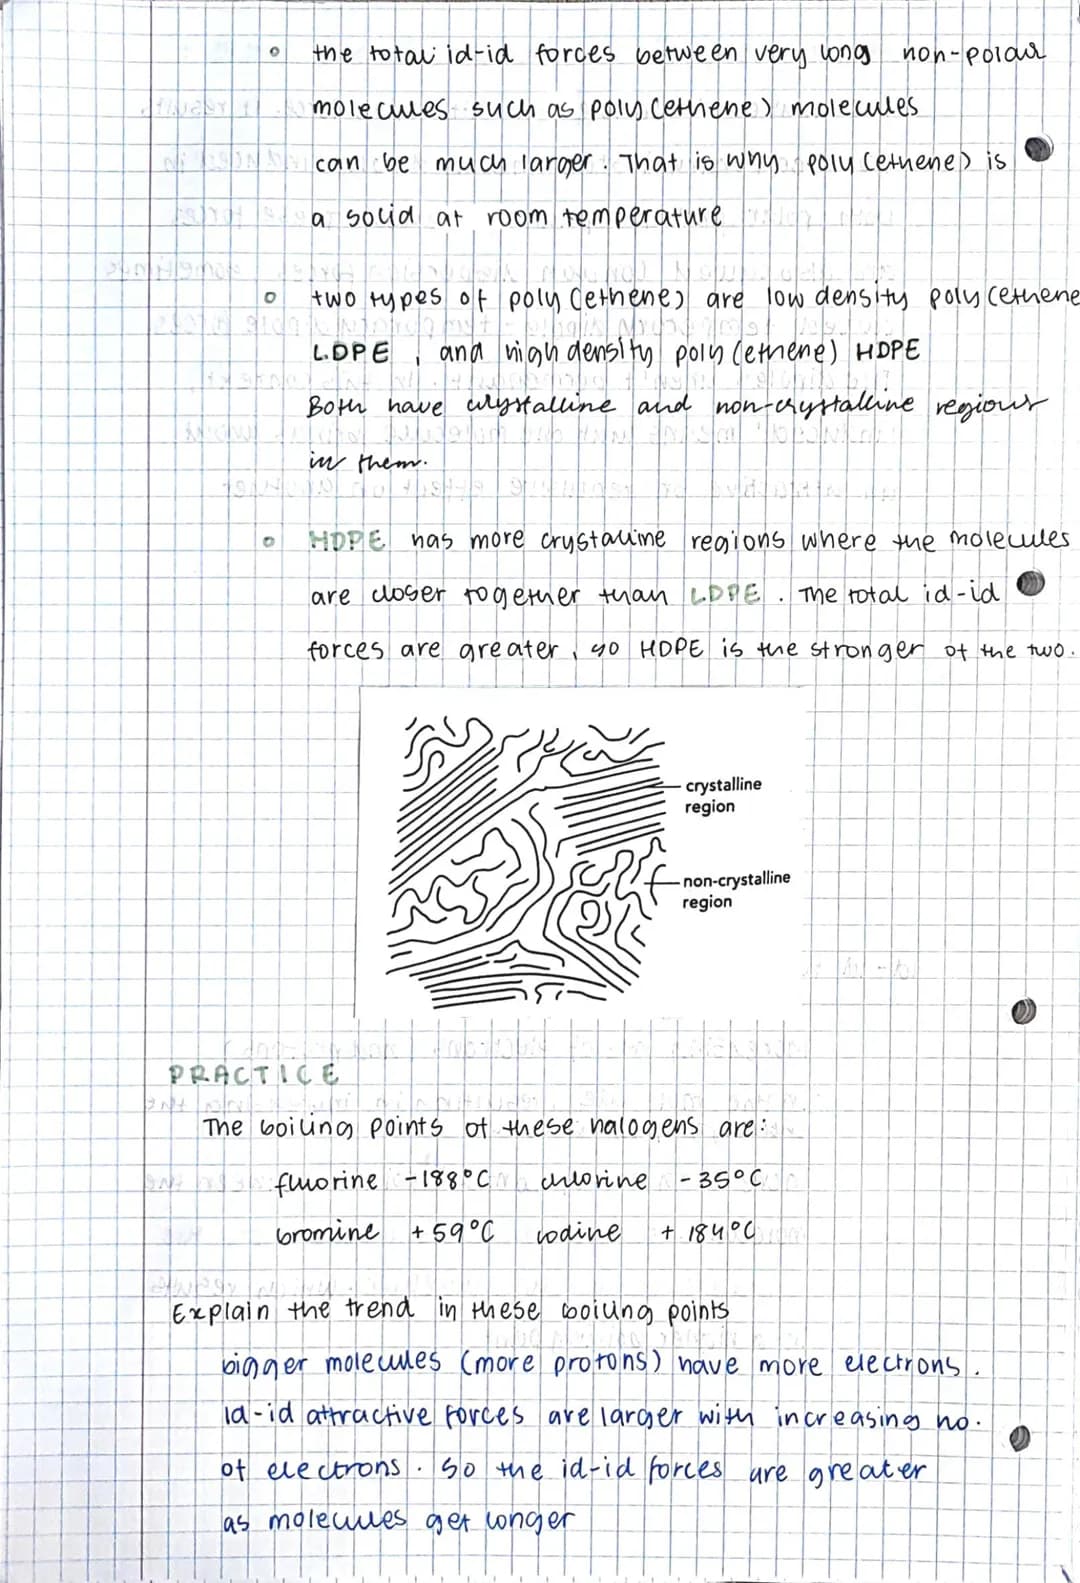 the total id-id forces between very long non-polar
molecules such as poly(ethene) molecules
can be much larger. That is why poly(ethene) is
a solid at room temperature
two types of poly(ethene) are low density poly(ethene
LDPE, and high density poly(ethene) HDPE
Both have crystalline and non-crystalline regions
in them.
HDPE has more crystalline regions where the molecules
are closer together than LDPE. The total id-id
forces are greater, so HDPE is the stronger of the two.
crystalline
region
non-crystalline
region
PRACTICE
The boiling points of these halogens are:
fluorine -188°C chlorine -35°C
bromine +59°C iodine +184°C
Explain the trend in these boiling points
bigger molecules (more protons) have more electrons.
Id-id attractive forces are larger with increasing no.
of electrons. So the id-id forces are greater
as molecules get longer